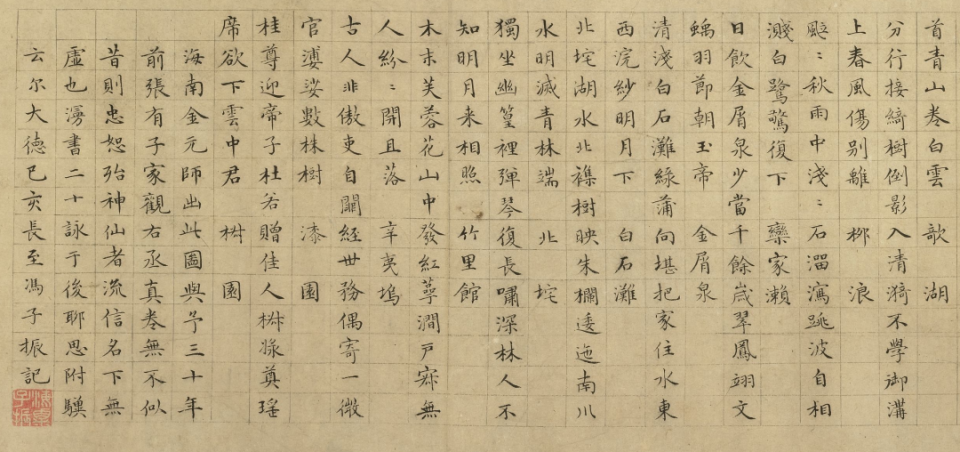 首青山卷白雲 欹湖
分行接綺樹倒影入清漪不學御溝
上春風傷別離 柳浪
颭〻秋雨中淺〻石溜瀉跳波自相
濺白鷺驚復下 欒家瀨
日飲金屑泉少當千餘歲翠鳳翊文
螭羽節朝玉帝 金屑泉
清淺白石灘綠蒲向堪把家住水東
西浣紗明月下 白石灘
北垞湖水北襍樹映朱欄逶迤南川
水明滅青林端 北垞
獨坐幽篁裡彈琴復長嘯深林人不
知明月来相照 竹里館
木末芙蓉花山中發紅萼澗戶寂無
人紛〻開且落 辛夷塢
古人非傲吏自闕經世務偶寄一微
官婆娑數林樹 漆園
桂尊迎帝子杜若贈佳人椒漿奠瑶
席欲下雲中君 椒園
海南金元師出此圖與予三十年
前張有子家觀右丞真卷無不似
昔則忠恕殆神仙者流信名下無
虛也漫書二十詠于後聊思附驥
云尔大德己亥長至馮子振記